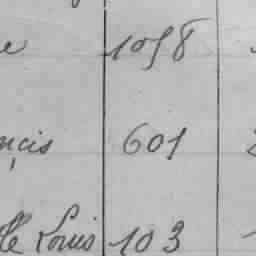 e 1058
ncis 601
lle Louis 103